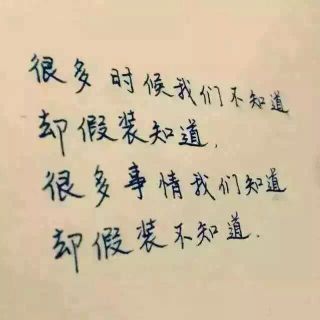 很多时候我们不知道
却假装知道，
很多事情我们知道
却假装不知道.